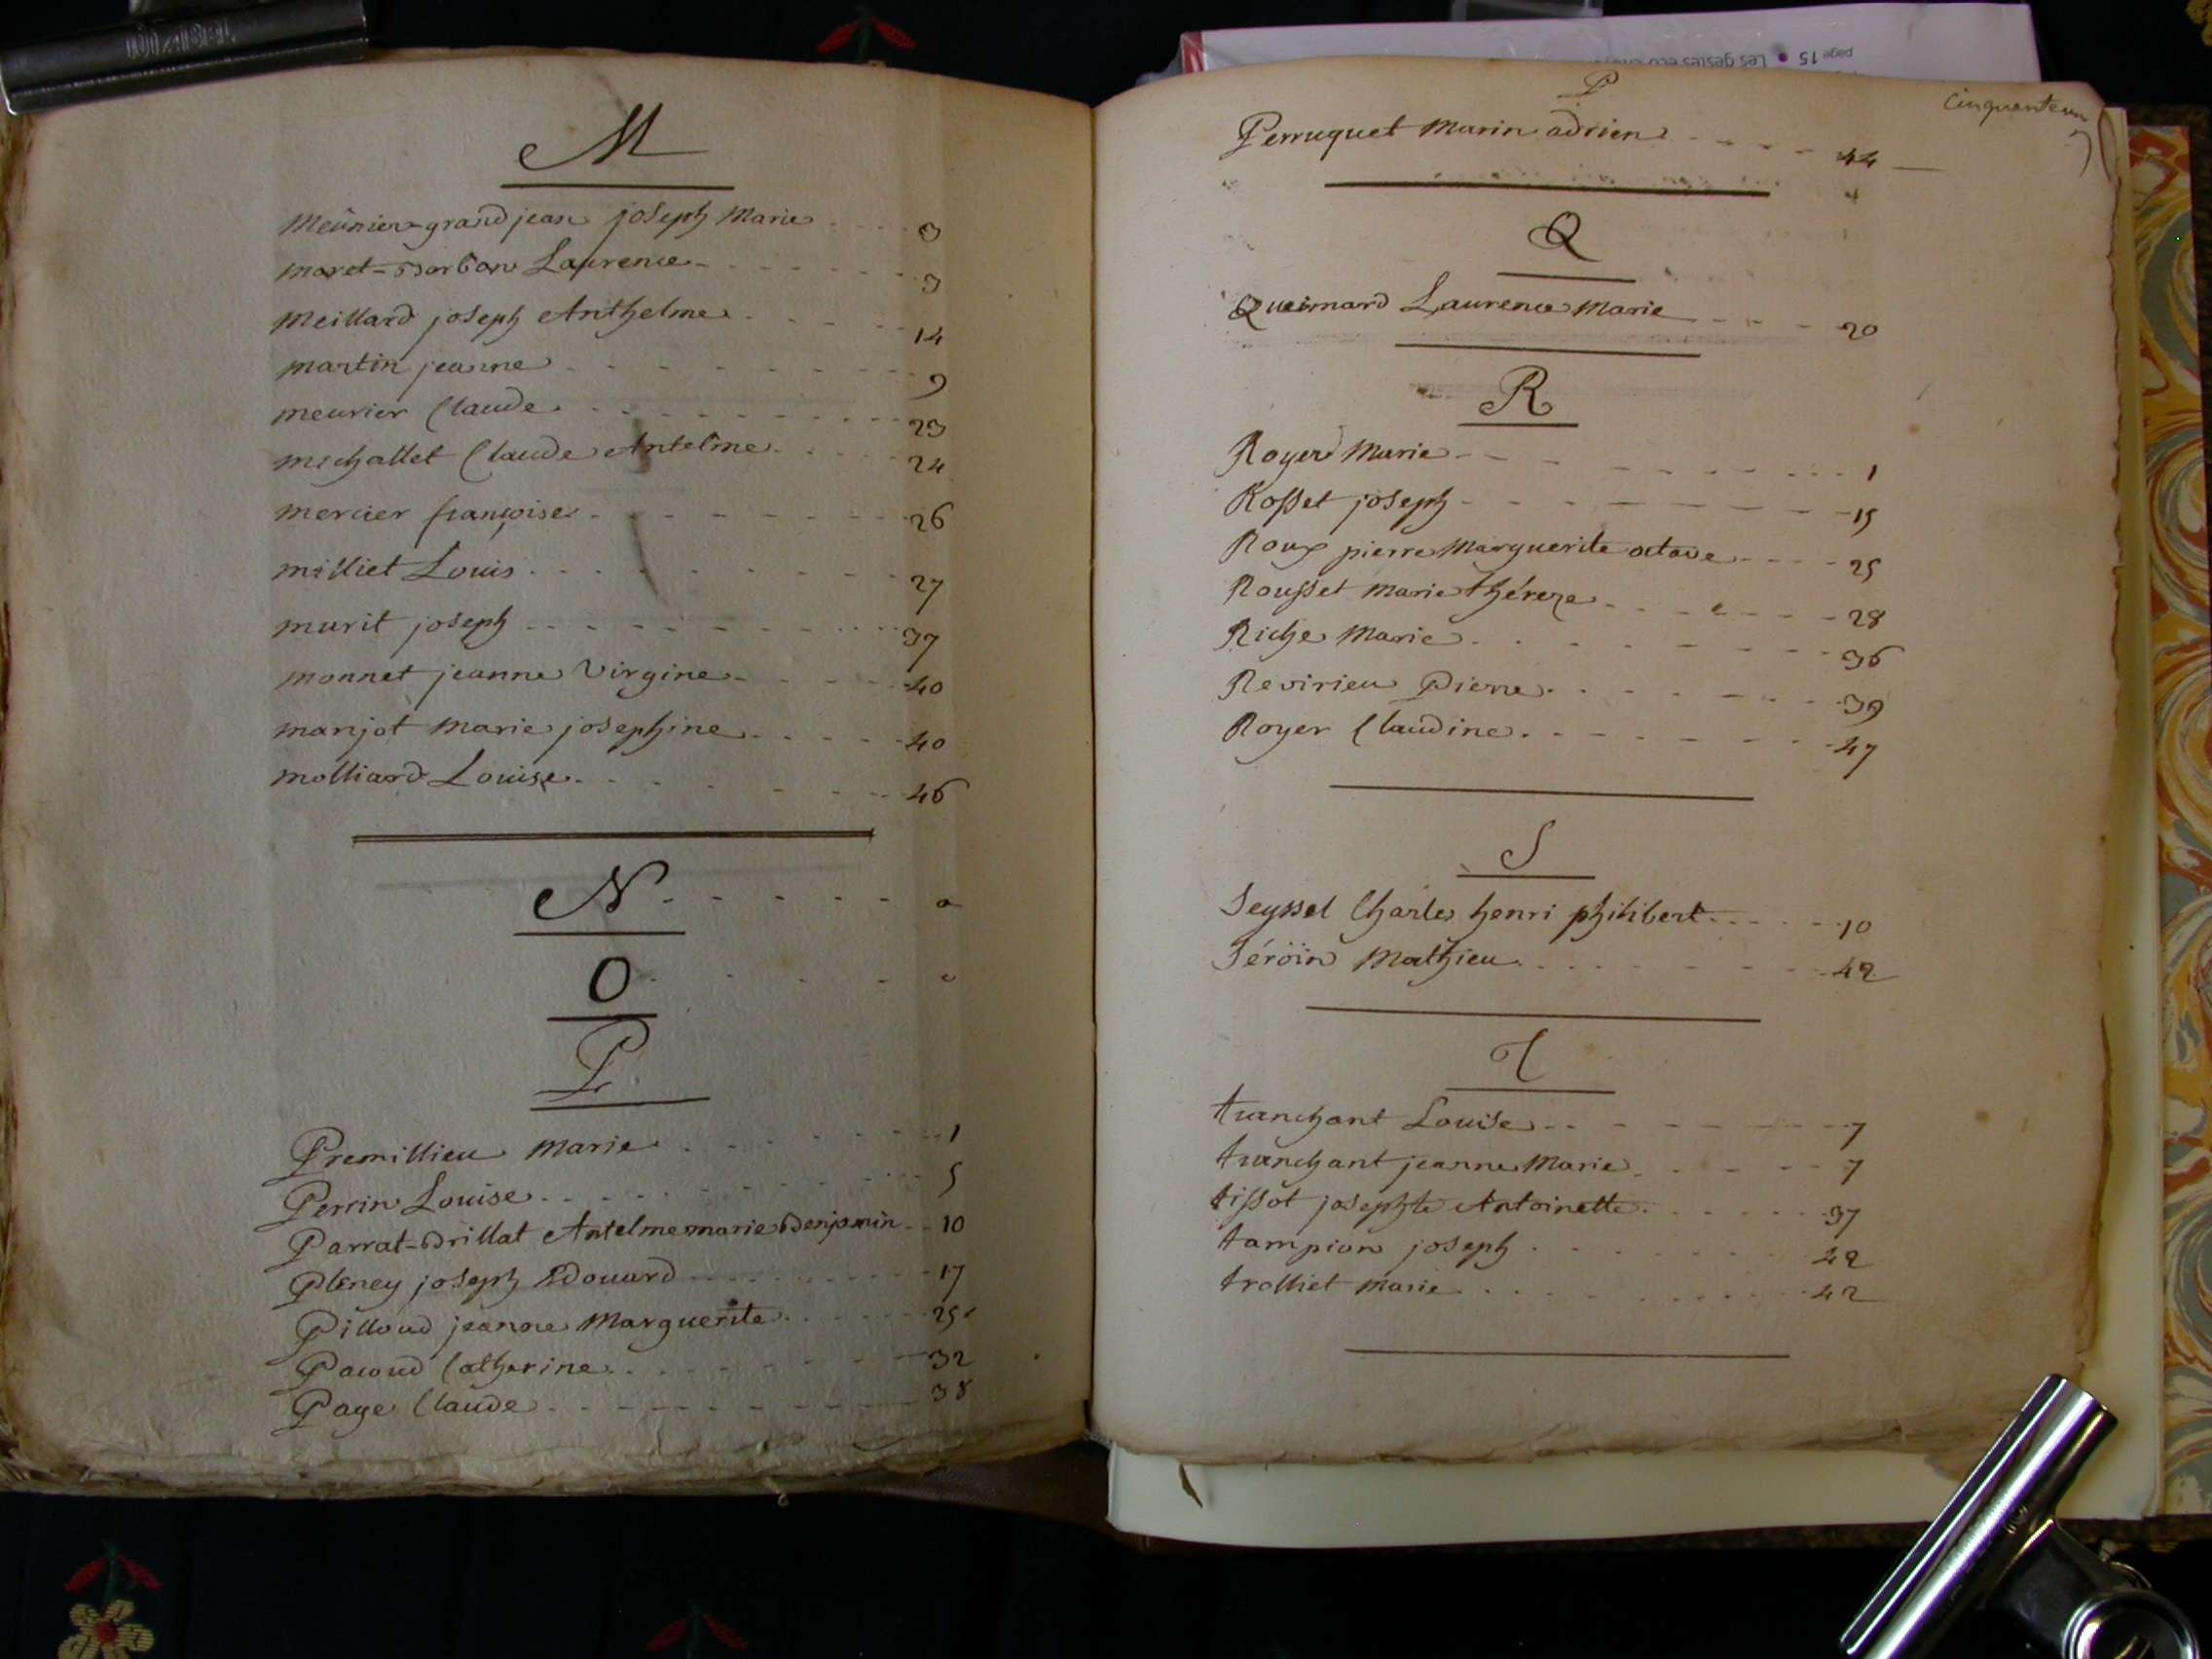 M
Meünier-grand jean joseph Marie - - - - 3
moret-Borbon Laurence - - - - - - 3
Meillard joseph Anthelme - - - - - 14
martin jeanne - - - - - - - - 9
meurier Claude - - - - - - - - 23
michallet Claude Antelme - - - - 24
mercier françoise - - - - - - - 26
milliet Louis - - - - - - - 27
murit joseph - - - - - - - - 37
monnet jeanne Virgine - - - - 40
manjot marie josephine - - - - 40
molliard Louise - - - - - - 46
N - - - - -
O - - - -
P
Premillieu Marie - - - - - - 1
Perrin Louise - - - - - - - 5
Parrat-Brillat Antelme marie Benjamin - - 10
Pleney joseph Edouard - - - - - 17
Pilloud jeanne Marguerite - - - - 25
Pacoud Catherine - - - - - - 32
Page Claude - - - - - - - 38
P
Cinquante un
Perruquet Marin adrien - - - - 44
Q
Queimard Laurence Marie - - - - 20
R
Royer Marie - - - - - - - - 1
Rosset joseph - - - - - - - - 15
Roux pierre Marguerite octave - - - - 25
Rousset marie théreze - - - - - - 28
Riche Marie - - - - - - - 36
Revirieu Pierre - - - - - - 39
Royer Claudine - - - - - - 47
S
Seyssel Charles henri philibert - - - - 10
Séröin Mathieu - - - - - - 42
T
tranchant Louise - - - - - - - 7
tranchant jeanne Marie - - - - - 7
tissot josephte Antoinette - - - - - 37
tampion joseph - - - - - - 42
trolliet marie - - - - - - - 42